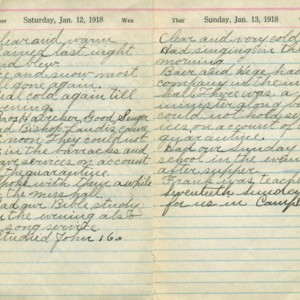 Ther Saturday, Jan. 12, 1918 Wea
Clear and warm
rained last night
and
ice and snow most
all gone again.
real cold again till
evening.
Good Singer
and Bishop Landis came
They could not
in the barracks and
have services on account
of the quarantine.
Spoke with them awhile
in the mess hall.
Had our Bible study
in the evening also
song service
Studied John 16.
Ther Sunday, Jan. 13, 1918 Wea
Clear and very cold
Had singing in the
morning.
Baer and Hege had
company in the
hall. There was a
minister along but
could not hold
services on account of
quarantine.
Had our Sunday
school in the evening
after supper.
Frank was teacher
twentieth Sunday
for us in Camp